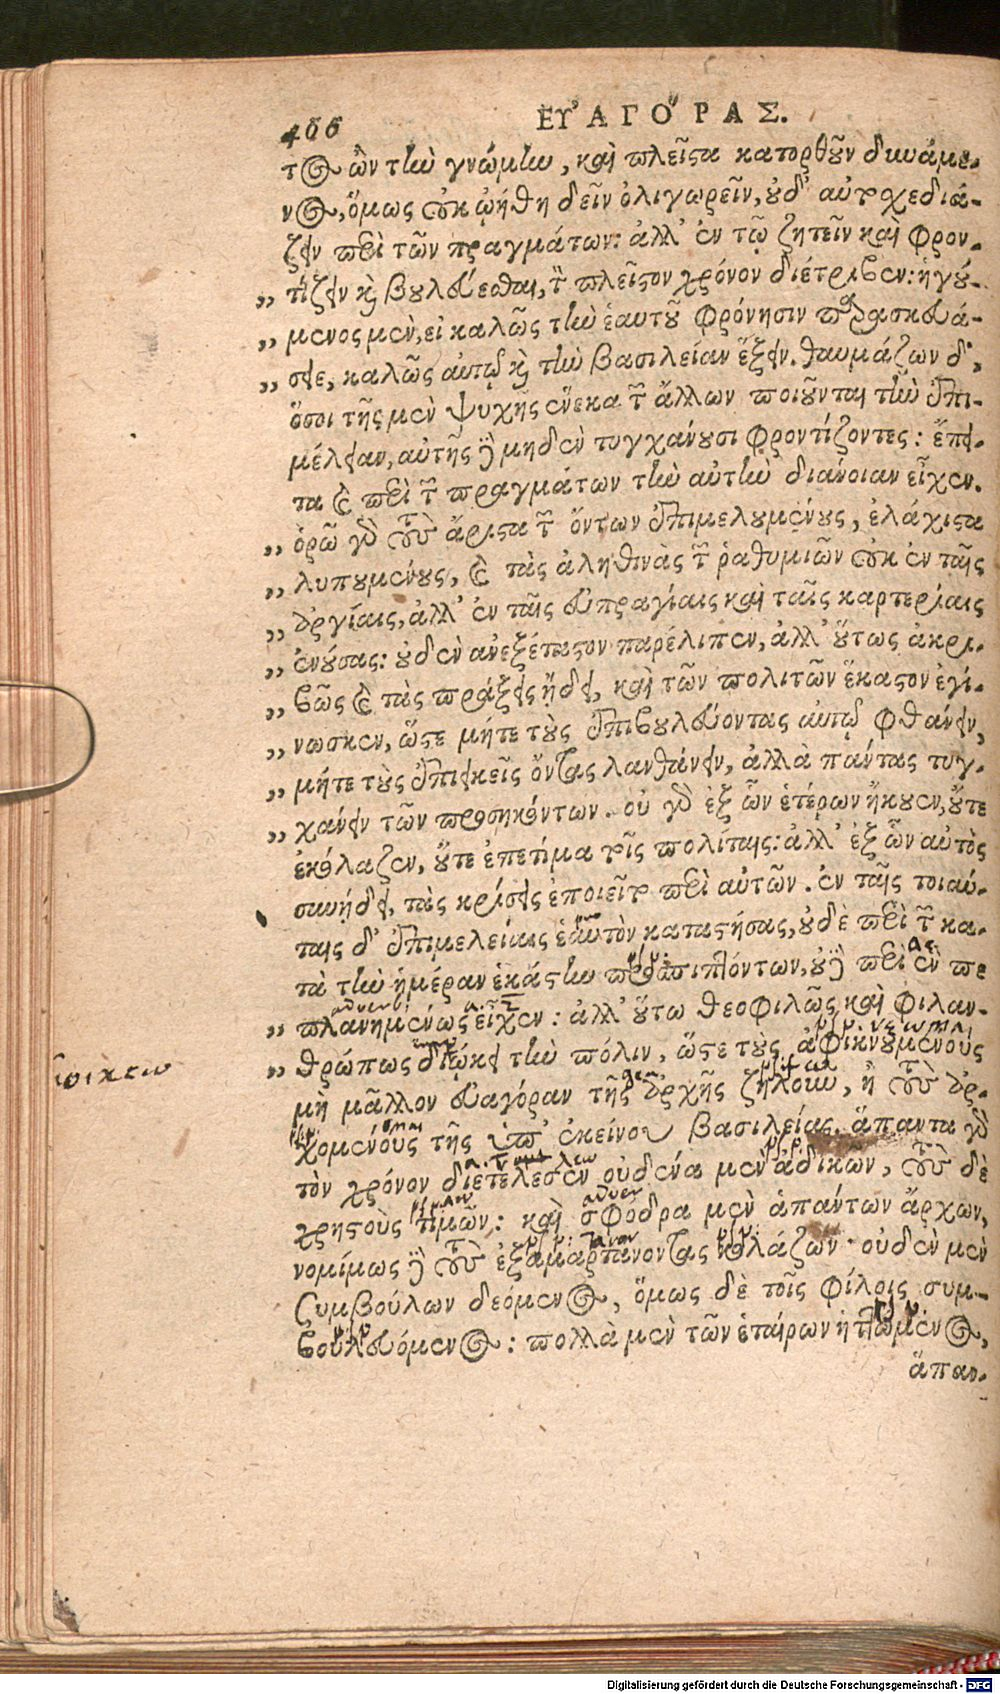 466 ΕΥ'ΑΓΟ'ΡΑΣ.
τος ὢν τὴν γνώμην, καὶ πλεῖστα κατορθοῦν δυνάμε-
νος, ὅμως οὐκ ᾠήθη δεῖν ὀλιγωρεῖν, οὐδ' αὐτοσχεδιά-
ζειν περὶ τῶν πραγμάτων: ἀλλ' ἐν τῷ ζητεῖν καὶ φρον-
,, τίζειν καὶ βουλεύεσθαι, τὸν πλεῖστον χρόνον διέτριβεν: ἡγού-
,, μενος μὲν, εἰ καλῶς τὴν ἑαυτοῦ φρόνησιν παρασκευά-
,, σειε, καλῶς αὐτῷ καὶ τὴν βασιλείαν ἕξειν. θαυμάζων δ',
ὅσοι τῆς μὲν ψυχῆς ἕνεκα τῶν ἄλλων ποιοῦνται τὴν ἐπι-
μέλειαν, αὐτῆς δὲ μηδὲν τυγχάνουσι φροντίζοντες: ἔπει-
τα καὶ περὶ τῶν πραγμάτων τὴν αὐτὴν διάνοιαν εἶχεν.
,, ὁρῶν γὰρ τοὺς ἄριστα τῶν ὄντων ἐπιμελουμένους, ἐλάχιστα
,, λυπουμένους, καὶ τὰς ἀληθινὰς τῶν ῥαθυμιῶν οὐκ ἐν ταῖς
,, ἀργίαις, ἀλλ' ἐν ταῖς εὐπραγίαις καὶ ταῖς καρτερίαις
,, ἐνούσας: οὐδὲν ἀνεξέταστον παρέλιπεν, ἀλλ' οὕτως ἀκρι-
,, βῶς καὶ τὰς πράξεις ᾔδει, καὶ τῶν πολιτῶν ἕκαστον ἐγί-
,, νωσκεν, ὥστε μήτε τοὺς ἐπιβουλεύοντας αὐτῷ φθάνειν,
,, μήτε τοὺς ἐπιεικεῖς ὄντας λανθάνειν, ἀλλὰ πάντας τυγ-
,, χάνειν τῶν προσηκόντων. οὐ γὰρ ἐξ ὧν ἑτέρων ἤκουεν, οὔτε
ἐκόλαζεν, οὔτε ἐπετίμα τοῖς πολίταις: ἀλλ' ἐξ ὧν αὐτὸς
συνῄδει, τὰς κρίσεις ἐποιεῖτο περὶ αὐτῶν. ἐν ταῖς τοιαύ-
ταις δ' ἐπιμελείαις ἑαυτὸν καταστήσας, οὐδὲ περὶ τῶν κα-
τὰ τὴν ἡμέραν ἑκάστην προσπιπτόντων, οὐδὲ περὶ ἓν πε
,, πλανημένως εἶχεν: ἀλλ' οὕτω θεοφιλῶς καὶ φιλαν-
,, θρώπως διῴκει τὴν πόλιν, ὥστε τοὺς ἀφικνουμένους
μὴ μᾶλλον Εὐαγόραν τῆς ἀρχῆς ζηλοῦν, ἢ τοὺς ἀρ-
χομένους τῆς ὑπ' ἐκείνου βασιλείας. ἅπαντα γὰρ
τὸν χρόνον διετέλεσεν οὐδένα μὲν ἀδικῶν, τοὺς δὲ
χρηστοὺς τιμῶν: καὶ σφόδρα μὲν ἁπάντων ἄρχων,
νομίμως δὲ τοὺς ἐξαμαρτάνοντας κολάζων. οὐδὲν μὲν
συμβούλων δεόμενος, ὅμως δὲ τοῖς φίλοις συμ-
βουλευόμενος: πολλὰ μὲν τῶν ἑταίρων ἡττώμενος,
ἅπαν-
διοικέω
Digitalisierung gefördert durch die Deutsche Forschungsgemeinschaft - DFG